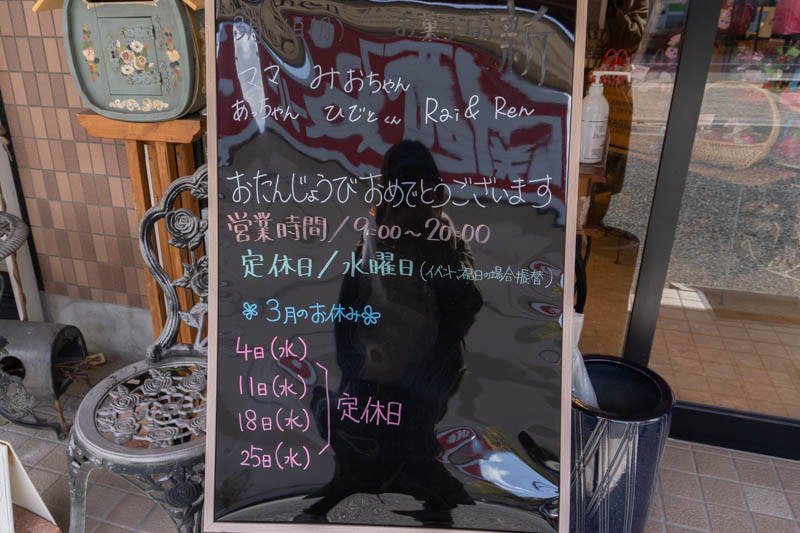 ママ みおちゃん
あっちゃん ひびとくん Rai & Ren
おたんじょうび おめでとうございます
営業時間/9:00~20:00
定休日/水曜日(イベント、祝日の場合振替)
3月のお休み
4日(水)
11日(水)
18日(水)
25日(水)
定休日